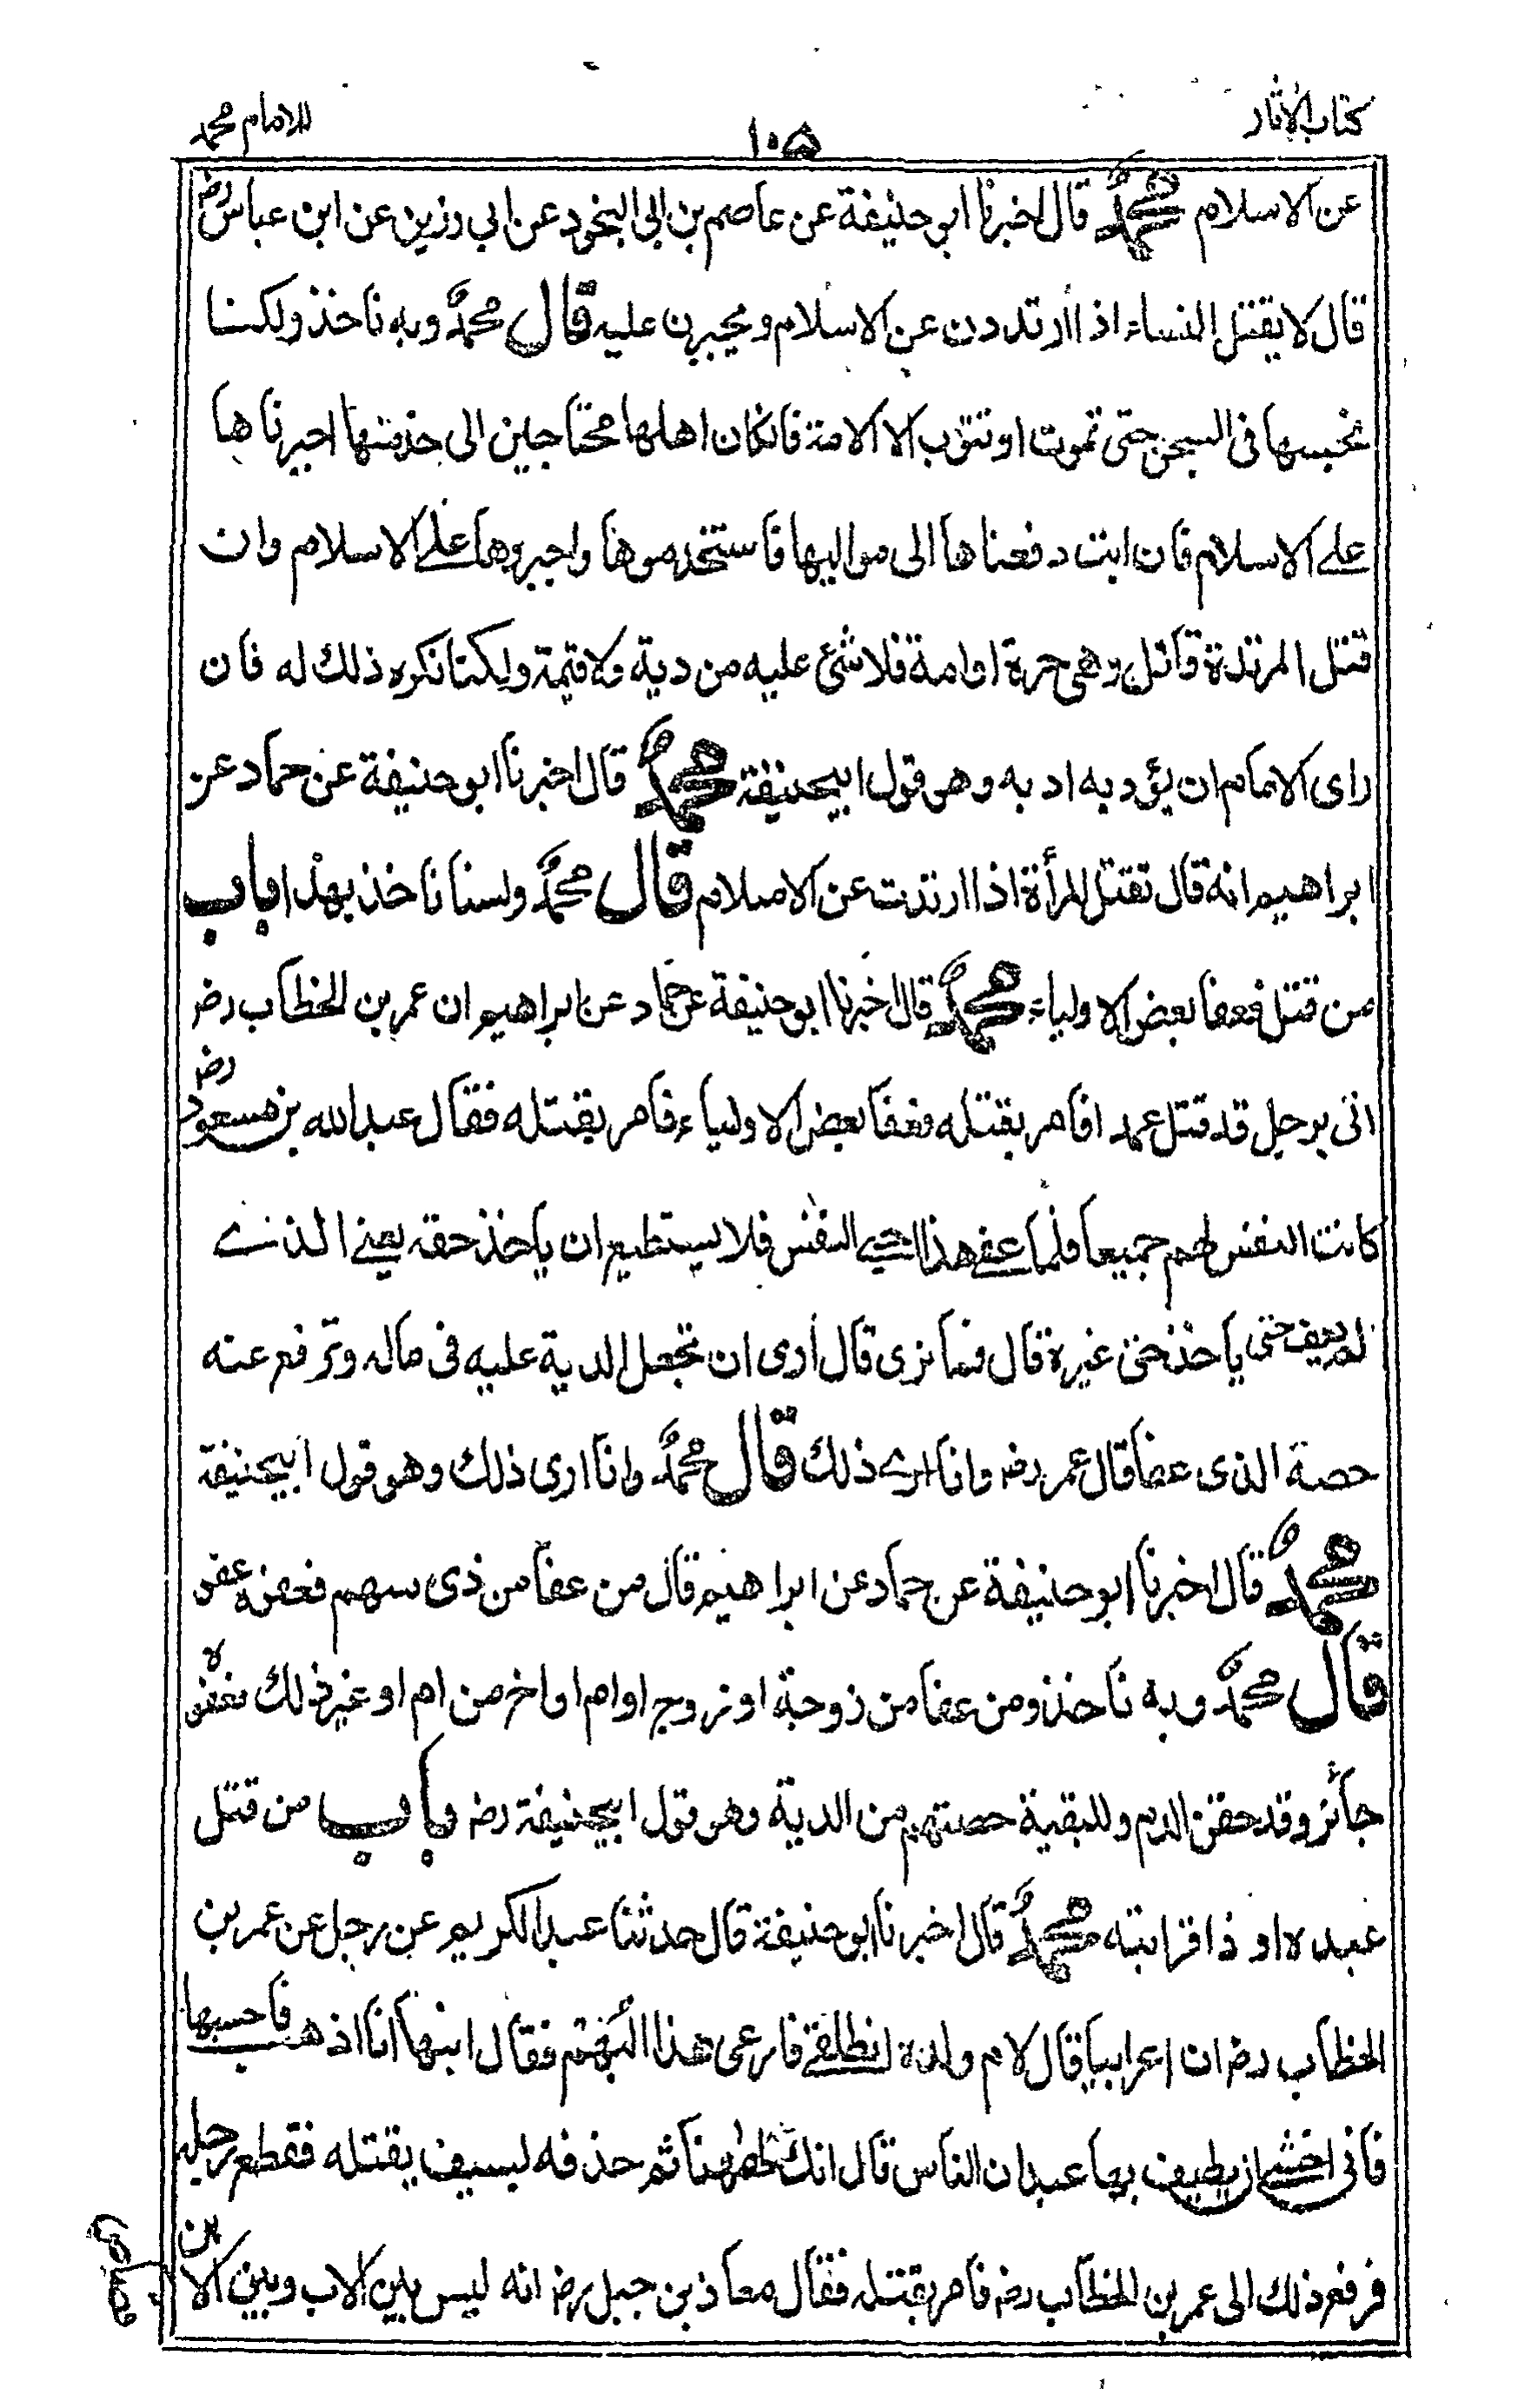 كتاب الآثار
١٠٥
للامام محمد
عن الاسلام محمد قال اخبرنا ابو حنيفة عن عاصم بن ابى النجود عن ابى رزين عن ابن عباس رض
قال لا يقتل النساء اذا ارتددن عن الاسلام و يجبرن عليه قال محمد وبه ناخذ ولكنا
نحبسها فى السجن حتى تموت او تتوب الا الامة فانكان اهلها محتاجين الى خدمتها اجبرناها
على الاسلام فان ابت دفعناها الى مواليها فاستخدموها واجبروها على الاسلام وان
قتل المرتدة قاتل وهى حرة او امة فلا شئ عليه من دية ولا قيمة ولكنا نكره ذلك له فان
راى الامام ان يؤدبه ادبه وهو قول ابيحنيفة محمد قال اخبرنا ابو حنيفة عن حماد عن
ابراهيم انه قال تقتل المرأة اذا ارتدت عن الاسلام قال محمد ولسنا ناخذ بهذا باب
من قتل فعفا بعض الاولياء محمد قال اخبرنا ابو حنيفة عن حماد عن ابراهيم ان عمر بن الخطاب رض
اتى برجل قد قتل عمدا فامر بقتله فعفا بعض الاولياء فامر بقتله فقال عبد الله بن مسعود رض
كانت النفس لهم جميعا فلما عفى هذا احيى النفس فلا يستطيع ان ياخذ حقه يعنى الذى
لم يعف حتى ياخذ حق غيره قال فما ترى قال ارى ان تجعل الدية عليه فى ماله وترفع عنه
حصة الذى عفا قال عمر رض وانا ارى ذلك قال محمد وانا ارى ذلك وهو قول ابيحنيفة
محمد قال اخبرنا ابو حنيفة عن حماد عن ابراهيم قال من عفا من ذى سهم فعفوه عفو
قال محمد وبه ناخذ ومن عفا من زوجة او زوج او ام او اخ من ام او غير ذلك فعفوه
جائز وقد حقن الدم وللبقية حصتهم من الدية وهو قول ابيحنيفة رض باب من قتل
عبده او ذا قرابته محمد قال اخبرنا ابو حنيفة قال حدثنا عبد الكريم عن رجل عن عمر بن
الخطاب رض ان اعرابيا قال لام ولده انطلقى فارعى هذا البهم فقال ابنها انا اذهب فاحسبها
فانى اخشى ان يطيف بها عبدان الناس قال انك لههنا ثم حذفه بسيف يقتله فقطع رجله
فرفع ذلك الى عمر بن الخطاب رض فامر بقتله فقال معاذ بن جبل رض انه ليس بين الاب وبين الابن
قصاص